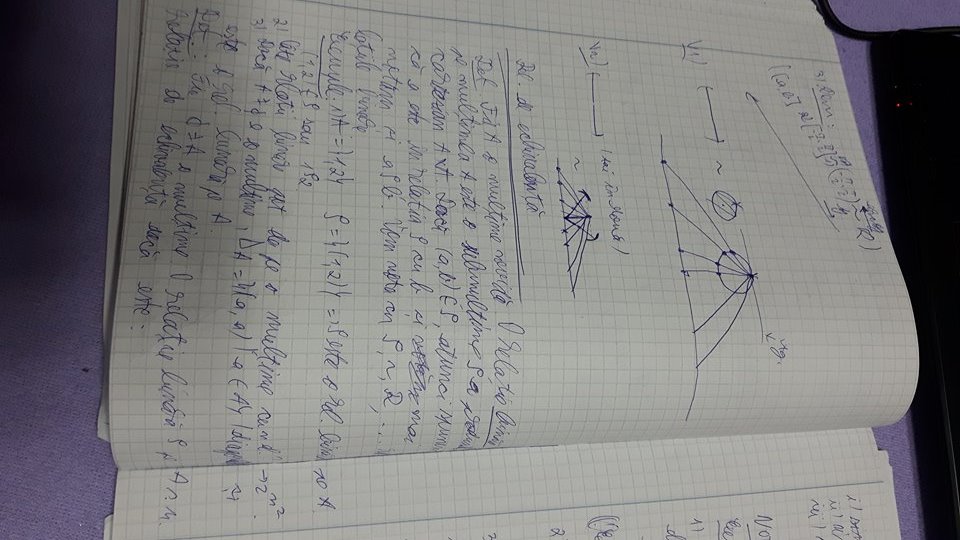 3) Dem:
([a,b] ~ [-π/2, π/2] ~ (-π/2, π/2) ~ R)
tg.
V1) ~
V2) (tai în două)
~
Rel. de echivalență
Def. Fie A o mulțime nevidă O relație binară
pe mulțimea A este o submulțime ρ a produs
cartezian A×A. Dacă (a,b) ∈ ρ, atunci spunem
că a este în relația ρ cu b și mai
notăm și aρb. Vom nota cu ρ, ~, R, ...
binare.
Exemple: 1) A = {1,2} ρ = {(1,2)} => ρ este o rel. binară pe A.
(1,2) ∈ ρ sau 1ρ2
2) Câte relații binare pot da pe o mulțime → 2^n²
3) Dacă A ≠ ∅ e o mulțime, Δ_A = {(a,a) | a ∈ A} (diagonala
este o rel. binară pe A.
Def.: Fie ∅ ≠ A o mulțime. O relație binară ρ pe A s.n.
relație de echivalență dacă este:
i)
ii)
iii)
1)
2